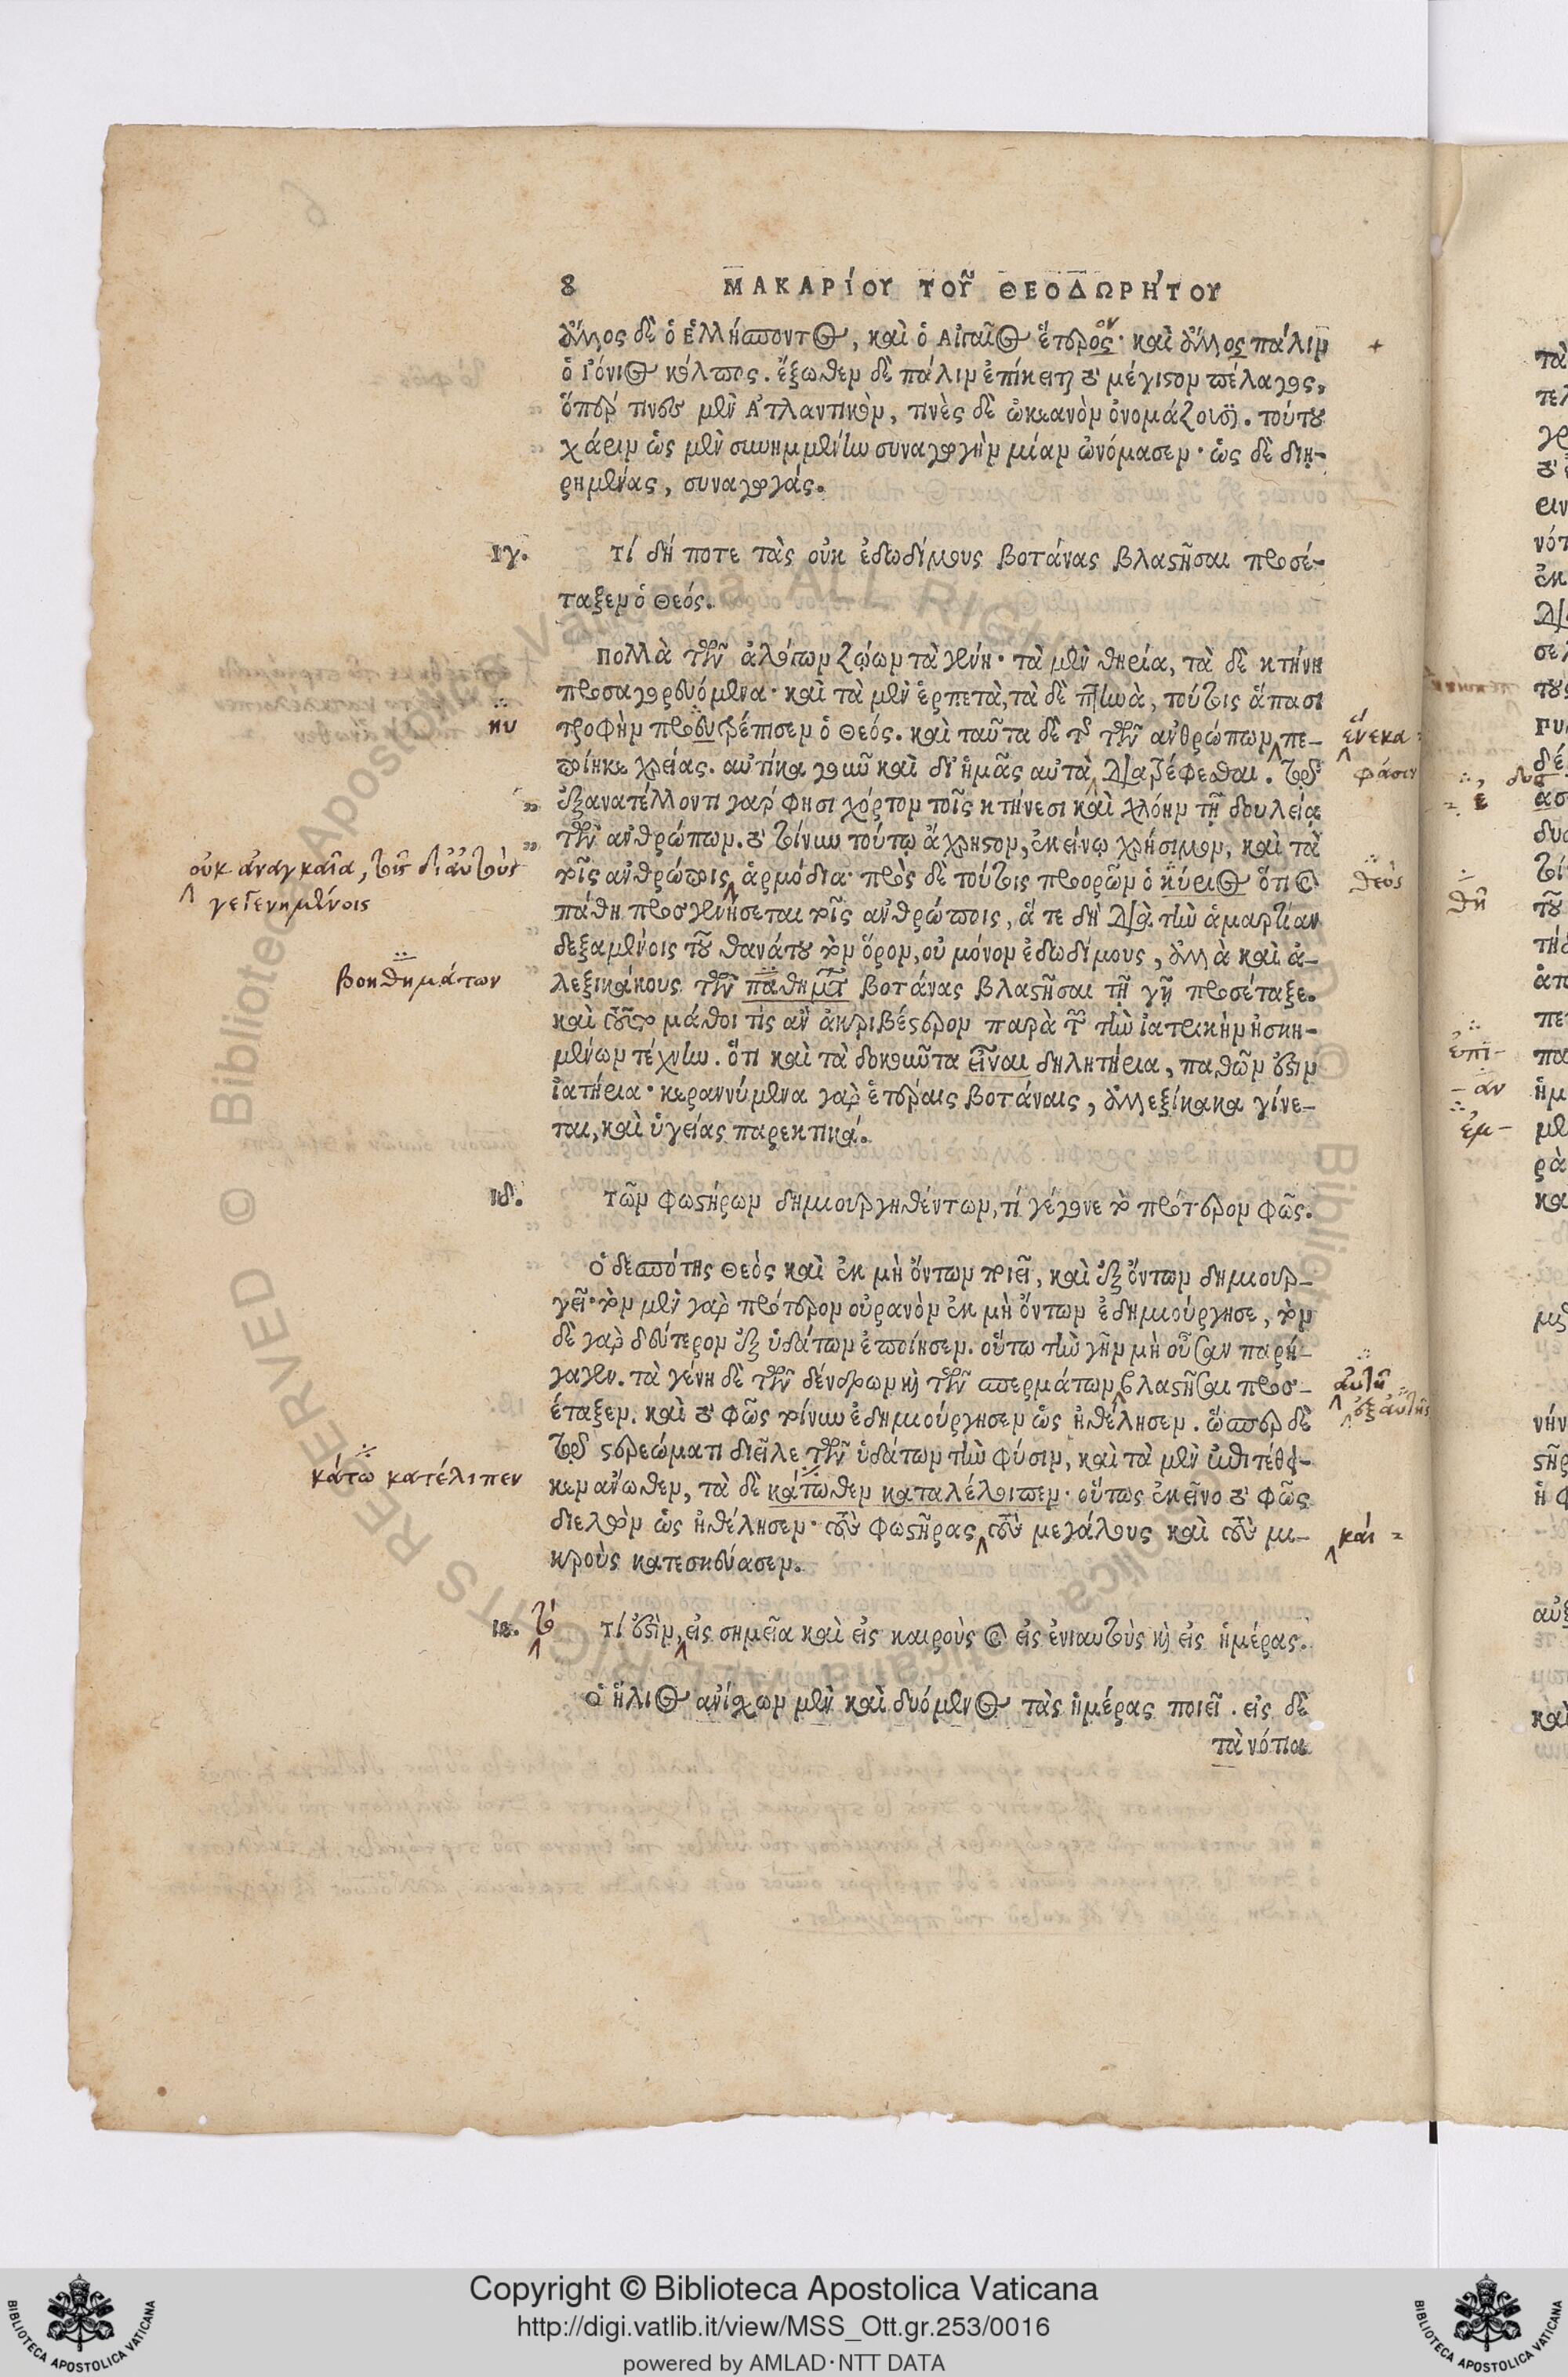 8 ΜΑΚΑΡίΟΥ ΤΟΥ͂ ΘΕΟΔΩΡΉΤΟΥ
ἄλλος δὲ ὁ Ἑλλήσποντος, καὶ ὁ Αἰγαῖος ἕτερος· καὶ ἄλλος πάλιν
ον
+
ὁ Ἰόνιος κόλπος. ἔξωθεν δὲ πάλιν ἐπίκειται τὸ μέγιστον πέλαγος,
ὅπερ τινὲς μὲν Ἀτλαντικὸν, τινὲς δὲ ὠκεανὸν ὀνομάζουσι. τούτου
χάριν ὡς μὲν συνημμένην συναγωγὴν μίαν ὠνόμασεν· ὡς δὲ διῃ-
ρημένας, συναγωγάς.
ιγ. Τί δή ποτε τὰς οὐκ ἐδωδίμους βοτάνας βλαστῆσαι προσέ-
ταξεν ὁ Θεός.
Πολλὰ τῶν ἀλόγων ζῴων τὰ γένη· τὰ μὲν θηρία, τὰ δὲ κτήνη
προσαγορευόμενα· καὶ τὰ μὲν ἑρπετὰ, τὰ δὲ πτηνὰ, τούτοις ἅπασι
ην
τροφὴν προευτρέπισεν ὁ Θεός. καὶ ταῦτα δὲ τῆς τῶν ἀνθρώπων πε-
εἵνεκα
ποίηκε χρείας. αὐτίκα γοῦν καὶ δι' ἡμᾶς αὐτὰ διατρέφεσθαι. τῷ
φάσιν
ἐξανατέλλοντι γάρ φησι χόρτον τοῖς κτήνεσι καὶ χλόην τῇ δουλείᾳ
τῶν ἀνθρώπων. τὸ τοίνυν τούτῳ ἄχρηστον, ἐκείνῳ χρήσιμον, καὶ τὰ
οὐκ ἀναγκαῖα, τοῖς δι' αὐτοὺς
γεγενημένοις
τοῖς ἀνθρώποις ἁρμόδια· πρὸς δὲ τούτοις προορῶν ὁ κύριος ὅτι καὶ
θεὸς
πάθη προσγενήσεται τοῖς ἀνθρώποις, ἅ τε δὴ διὰ τὴν ἁμαρτίαν
δεξαμένοις τοῦ θανάτου τὸν ὅρον, οὐ μόνον ἐδωδίμους, ἀλλὰ καὶ ἀ-
βοηθημάτων
λεξικάκους τῶν παθημάτων βοτάνας βλαστῆσαι τῇ γῇ προσέταξε.
καὶ τοῦτο μάθοι τὶς ἂν ἀκριβέστερον παρὰ τῶν τὴν ἰατρικὴν ἠσκη-
μένων τέχνην. ὅτι καὶ τὰ δοκοῦντα εἶναι δηλητήρια, παθῶν ἐστιν
ἰατήρια· κεραννύμενα γὰρ ἑτέραις βοτάναις, ἀλλεξίκακα γίνε-
ται, καὶ ὑγείας παρεκτικά.
ιδ. Τῶν φωστήρων δημιουργηθέντων, τί γέγονε τὸ πρότερον φῶς.
Ὁ δεσπότης Θεὸς καὶ ἐκ μὴ ὄντων ποιεῖ, καὶ ἐξ ὄντων δημιουρ-
γεῖ· τὸν μὲν γὰρ πρότερον οὐρανὸν ἐκ μὴ ὄντων ἐδημιούργησε, τὸν
δὲ γὰρ δεύτερον ἐξ ὑδάτων ἐποίησεν. οὕτω τὴν γῆν μὴ οὖσαν παρή-
γαγεν. τὰ γένη δὲ τῶν δένδρων καὶ τῶν σπερμάτων βλαστῆσαι προσ-
αὐτῇ
ἐξ αὐτῆς
έταξεν. καὶ τὸ φῶς τοίνυν ἐδημιούργησεν ὡς ἠθέλησεν. ὥσπερ δὲ
τῷ στερεώματι διεῖλε τῶν ὑδάτων τὴν φύσιν, καὶ τὰ μὲν ἐπιτέθει-
κάτω κατέλιπεν
κεν ἄνωθεν, τὰ δὲ κάτωθεν καταλέλοιπεν· οὕτως ἐκεῖνο τὸ φῶς
διελὼν ὡς ἠθέλησεν· τοὺς φωστῆρας τοὺς μεγάλους καὶ τοὺς μι-
καὶ
κροὺς κατεσκεύασεν.
ιε. τὸ
Τί ἐστὶν, εἰς σημεῖα καὶ εἰς καιροὺς καὶ εἰς ἐνιαυτοὺς καὶ εἰς ἡμέρας.
Ὁ ἥλιος ἀνίσχων μὲν καὶ δυόμενος τὰς ἡμέρας ποιεῖ. εἰς δὲ
τὰ νότια
Copyright © Biblioteca Apostolica Vaticana
http://digi.vatlib.it/view/MSS_Ott.gr.253/0016
powered by AMLAD·NTT DATA